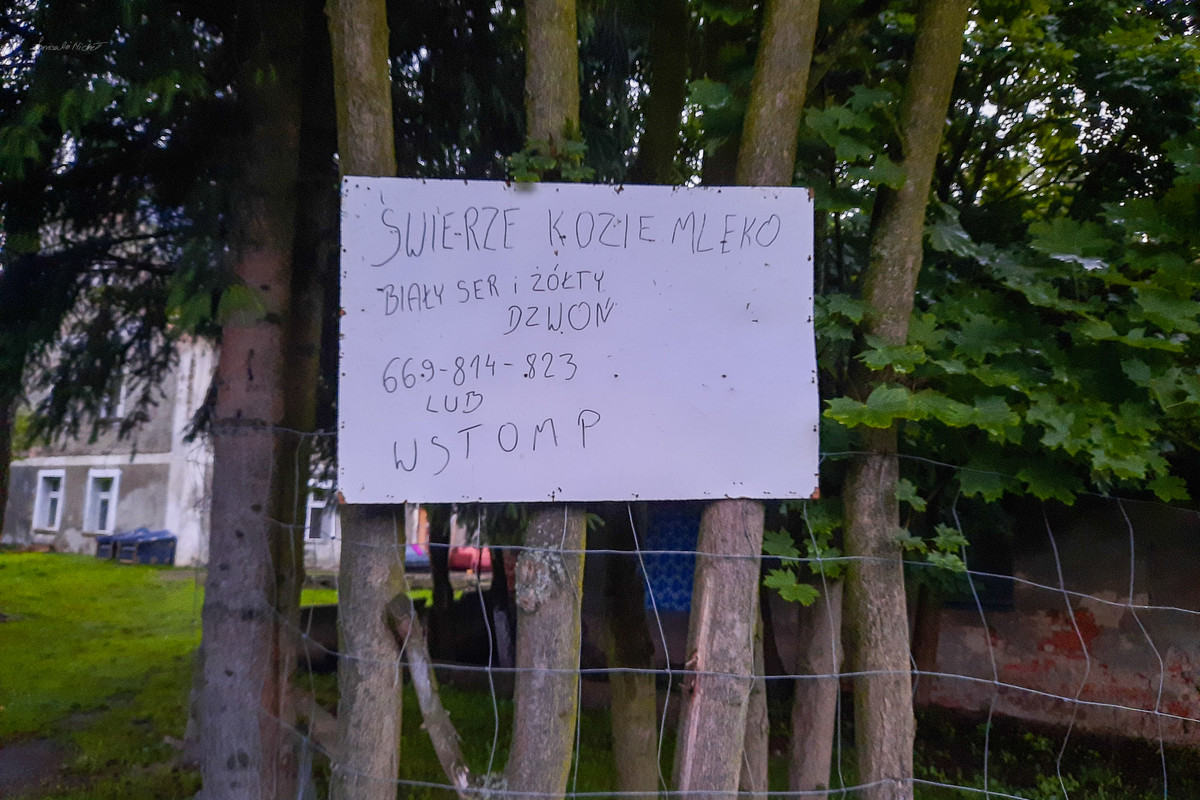 ŚWIERZE KOZIE MLEKO
BIAŁY SER i ŻÓŁTY
DZWOŃ
669-814-823
LUB
WSTOMP